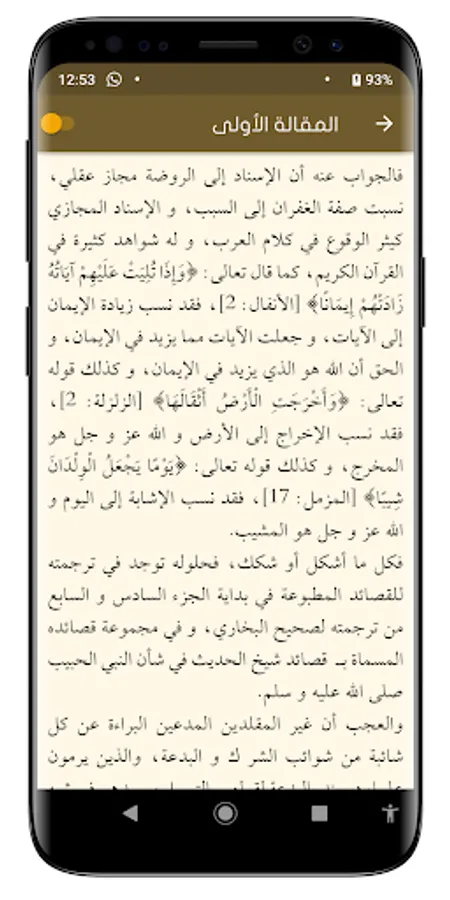 12:53
93%
المقالة الأولى
فالجواب عنه أن الإسناد إلى الروضة مجاز عقلي،
نسبت صفة الغفران إلى السبب، و الإسناد المجازي
كيثر الوقوع في كلام العرب، و له شواهد كثيرة في
القرآن الكريم، كما قال تعالى: ﴿وَإِذَا تُلِيَتْ عَلَيْهِمْ آيَاتُهُ
زَادَتْهُمْ إِيمَانًا﴾ [الأنفال: 2]، فقد نسب زيادة الإيمان
إلى الآيات، و جعلت الآيات مما يزيد في الإيمان، و
الحق أن الله هو الذي يزيد في الإيمان، و كذلك قوله
تعالى: ﴿وَأَخْرَجَتِ الْأَرْضُ أَثْقَالَهَا﴾ [الزلزلة: 2]،
فقد نسب الإخراج إلى الأرض و الله عز و جل هو
المخرج، و كذلك قوله تعالى: ﴿يَوْمًا يَجْعَلُ الْوِلْدَانَ
شِيبًا﴾ [المزمل: 17]، فقد نسب الإشابة إلى اليوم و
الله عز و جل هو المشيب.
فكل ما أشكل أو شكك، فحلوله توجد في ترجمته
للقصائد المطبوعة في بداية الجزء السادس و السابع
من ترجمته لصحيح البخاري، و في مجموعة قصائده
المسماة بـ قصائد شيخ الحديث في شأن النبي الحبيب
صلى الله عليه و سلم.
والعجب أن غير المقلدين المدعين البراءة عن كل
شائبة من شوائب الشر ك و البدعة، والذين يرمون